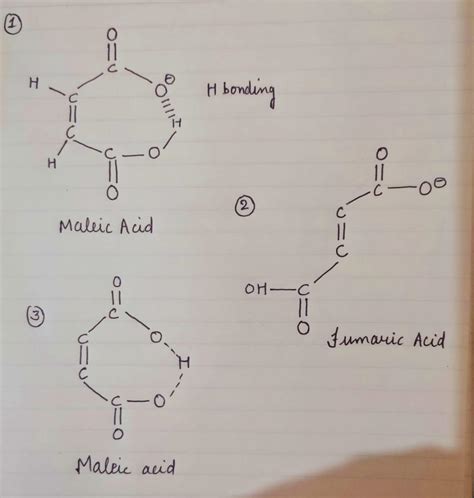 ①
O
||
C
H
O⊖
C
H bonding
||
H
C
C
O
H
||
O
Maleic Acid
②
O
||
C
O⊖
C
||
C
OH
C
||
O
Fumaric Acid
③
O
||
C
O
C
H
||
C
C
O
||
O
Maleic acid